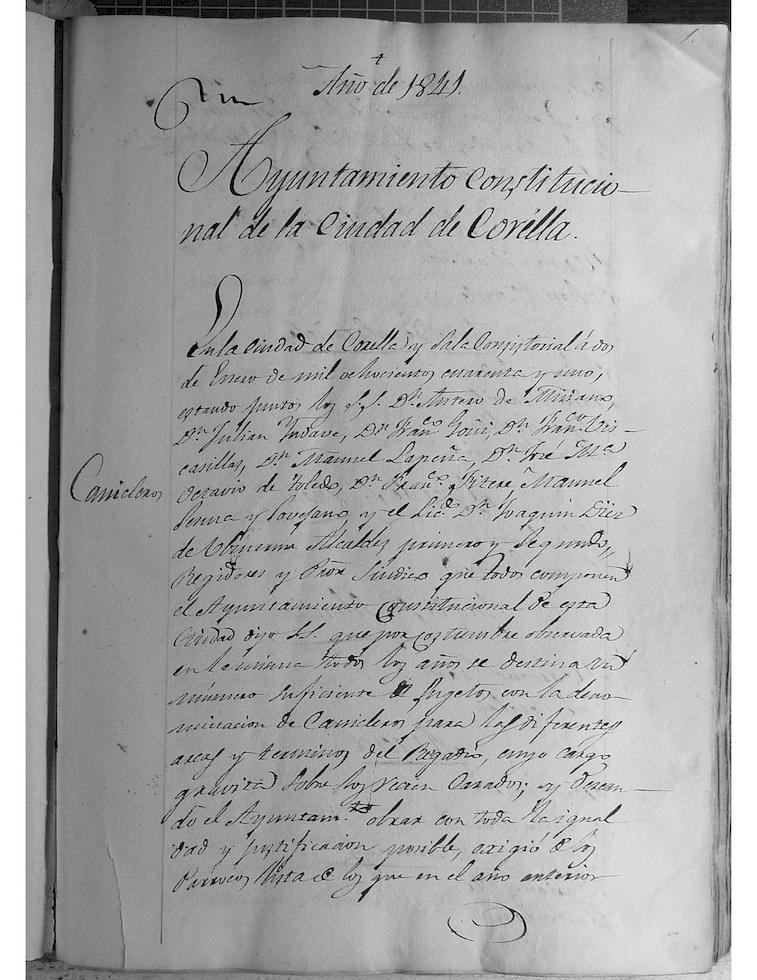 1.
Año de 1841.
Ayuntamiento constitucio-
nal de la Ciudad de Corella.
En la Ciudad de Corella y Sala Consistorial á dos
de Enero de mil ochocientos cuarenta y uno,
estando juntos los S.S. Dn. Antero de
Dn. Julian Yndave, Dn. Franco. Goñi, Dn. Franco. Vis-
casillas, Dn. Manuel Lapeña, Dn. José Ma
Octavio de Toledo, Dn. Franco. Manuel
y el Licdo. Dn. Joaquin
de Alcaldes primero y Segundo,
Regidores y Pror. Sindico que todos componen
el Ayuntamiento Constitucional de esta
Ciudad dijo SS. que por costumbre observada
en la misma todos los años se destina un
número suficiente de sugetos con la deno-
minacion de Canicleros para las diferentes
areas y terminos del Regadio, cuyo cargo
gravita sobre los recien Casados; y desean-
do el Ayuntam.to obrar con toda la igual
dad y justificacion posible, exigió de los
Parrocos lista de los que en el año anterior
Canicleros